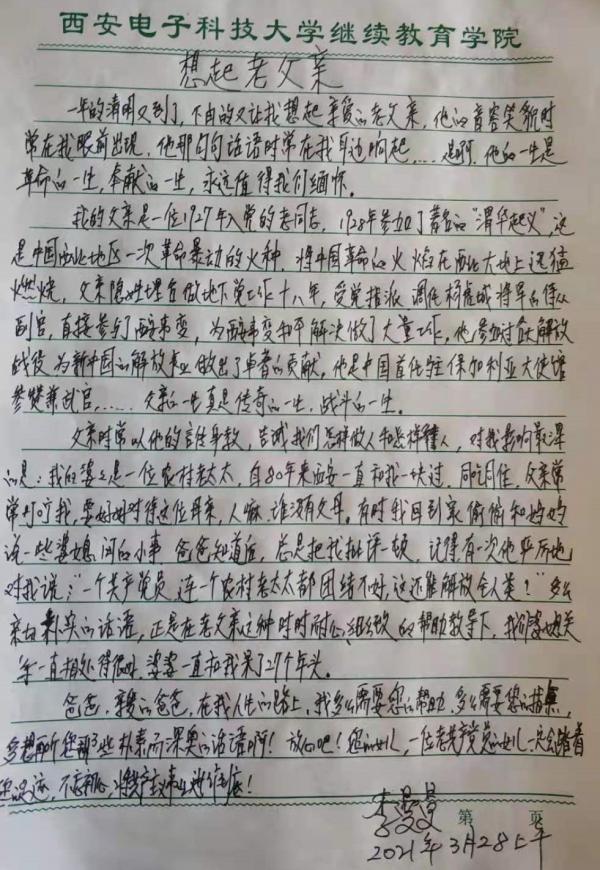 西安电子科技大学继续教育学院
想起老父亲
一年的清明又到了,不由的又让我想起亲爱的老父亲,他的音容笑貌时
常在我眼前出现,他那句句话语时常在我耳边响起……是啊,他的一生是
革命的一生,奉献的一生,永远值得我们缅怀。
我的父亲是一位1927年入党的老同志,1928年参加了著名的"渭华起义",这
是中国西北地区一次革命暴动的火种,将中国革命的火焰在西北大地上迅猛
燃烧,父亲隐姓埋名做地下党工作十八年,受党指派,调任杨虎城将军的侍从
副官,直接参与了西安事变,为西安事变和平解决做了大量工作,他参加过解放
战役,为新中国的解放事业做出了卓著的贡献,他是中国首任驻保加利亚大使馆
参赞兼武官,……父亲的一生真是传奇的一生,战斗的一生。
父亲时常以他的言传身教,告诫我们怎样做人和怎样待人,对我影响最深
的是:我的婆婆是一位农村老太太,自80年来西安一直和我一块过,同吃同住,父亲常
常叮咛我,要好好对待这位母亲,人嘛,谁没有父母。有时我回到家偷偷和妈妈
说一些婆媳间的小事,爸爸知道后,总是把我批评一顿,记得有一次他严厉地
对我说:"一个共产党员,连一个农村老太太都团结不好,这还能解放全人类?"多么
亲切朴实的话语,正是在老父亲这种时时耐心细致的帮助教导下,我们婆媳关
系一直相处得很好,婆婆一直和我呆了27个年头。
爸爸,亲爱的爸爸,在我人生的路上,我多么需要您的帮助,多么需要您的指点,
多想再听您那些朴素而深奥的话语啊!放心吧!您的女儿,一位老共产党员的女儿一定会踏着
您的足迹,不忘初心,将共产主义事业进行到底!
第 页
2021年3月28上午